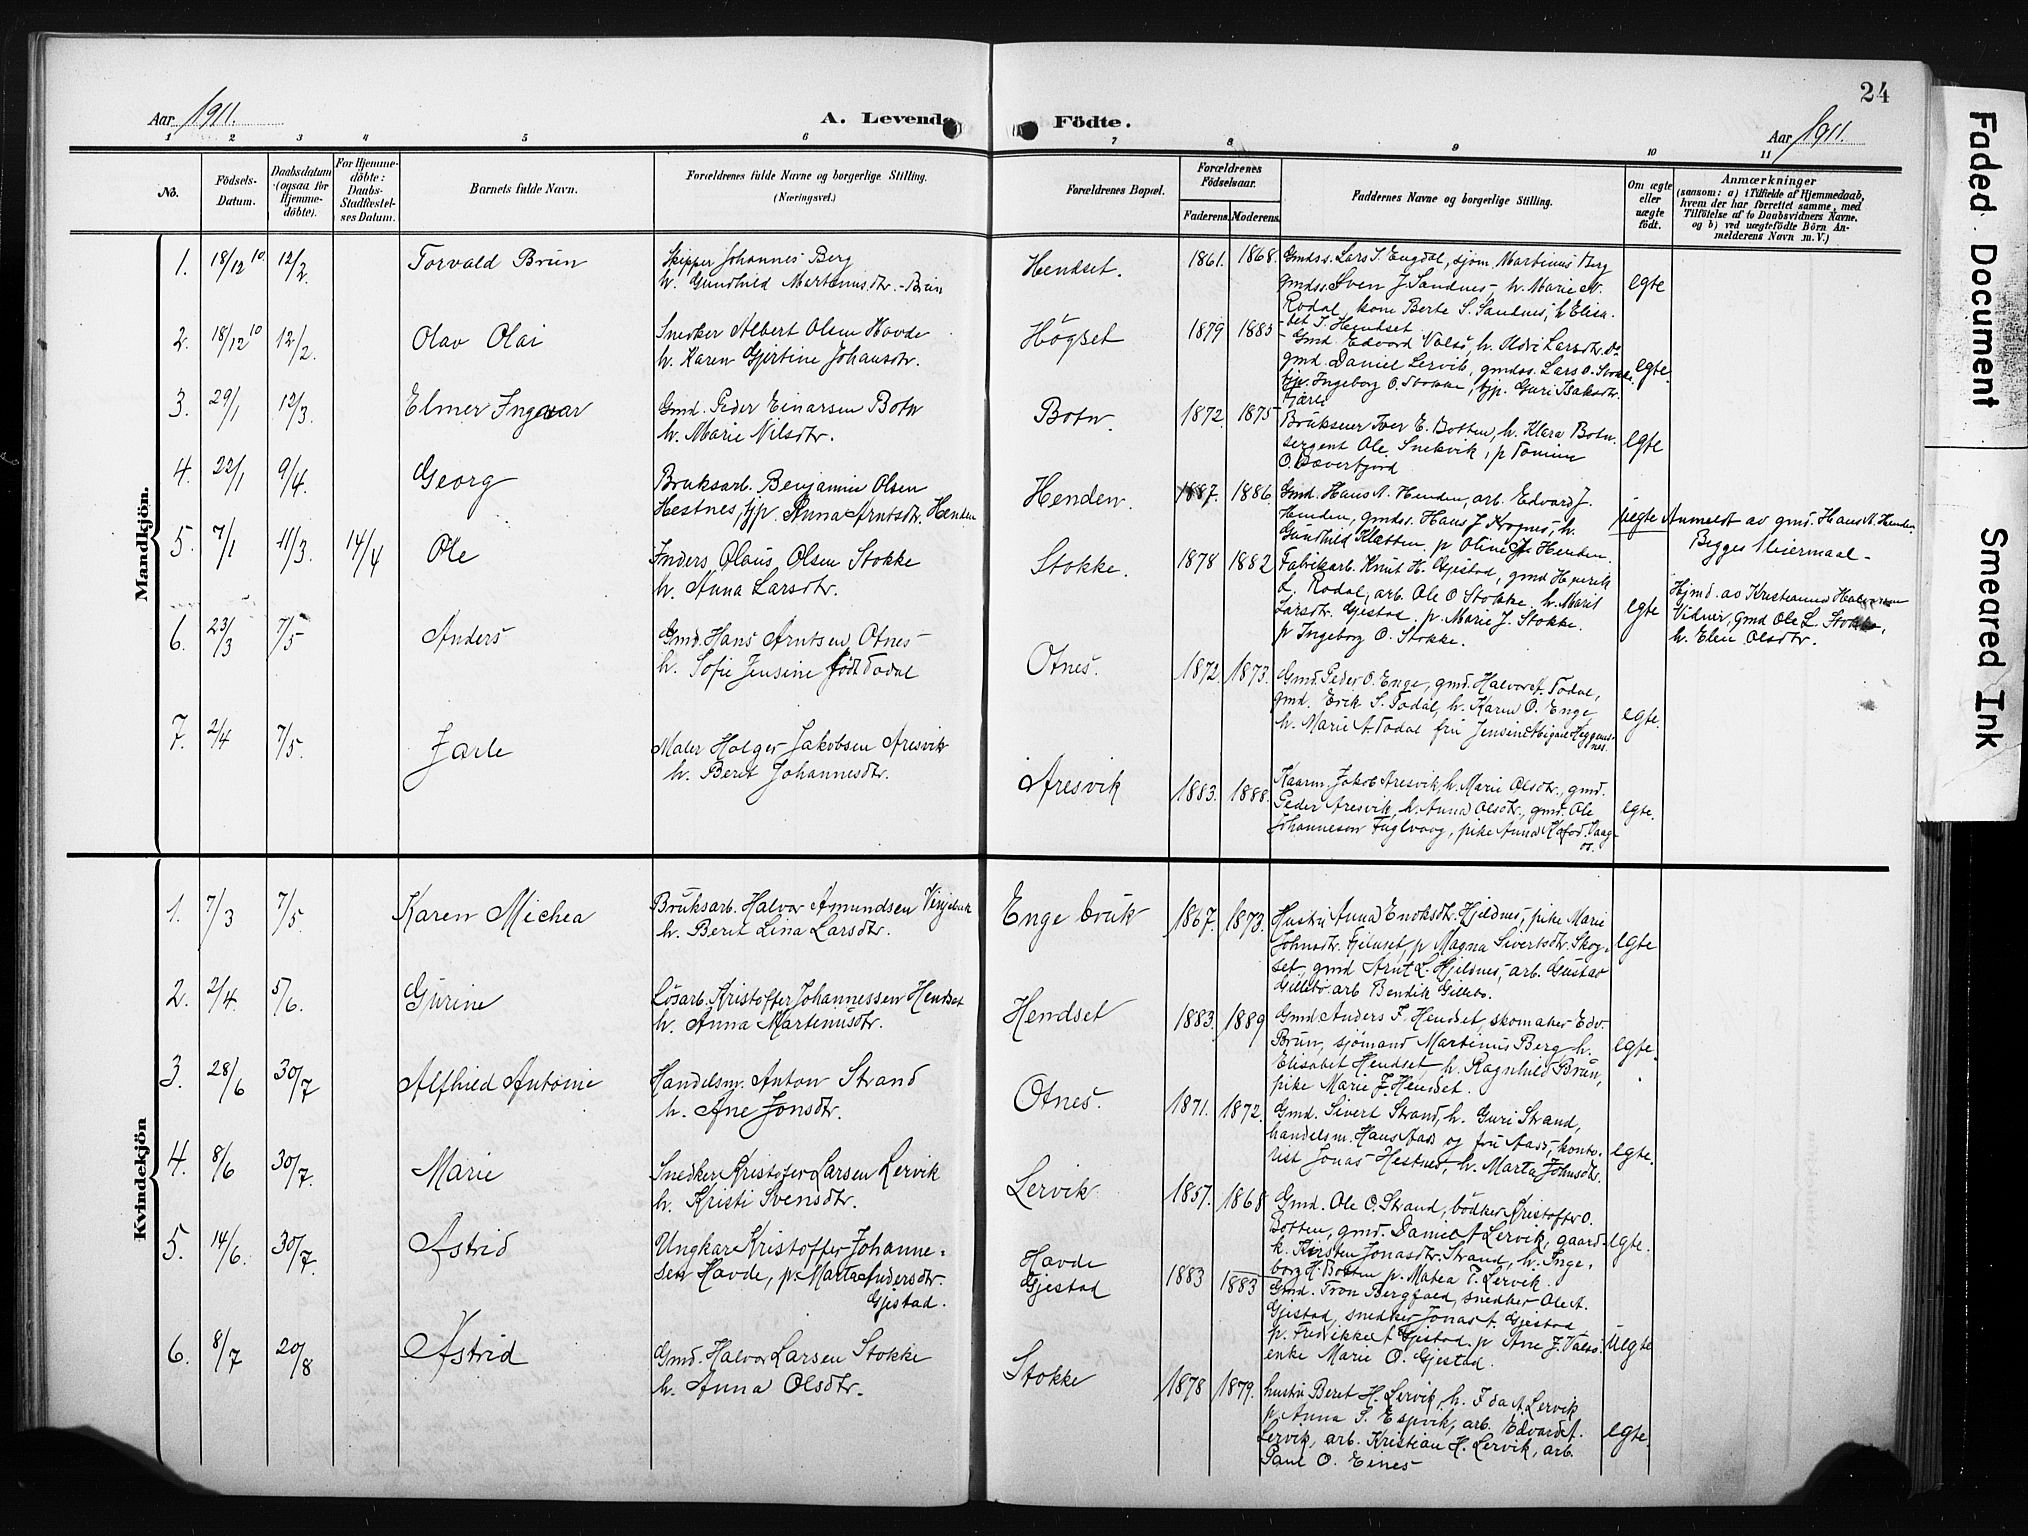 24
Aar 1911.
A. Levende
Födte.
Aar 1911.
1 2 3 4 5 6 7 8 9 10 11
No.
Födsels-
Datum.
Daabsdatum
(ogsaa for
Hjemme-
döbte).
For Hjemme-
döbte:
Daabs-
Stadfæstel-
ses Datum.
Barnets fulde Navn.
Forældrenes fulde Navne og borgerlige Stilling.
(Næringsvei.)
Forældrenes Bopæl.
Forældrenes
Födselsaar.
Faderens. Moderens.
Faddernes Navne og borgerlige Stilling.
Om ægte
eller
uægte
födt.
Anmærkninger
(saasom: a) i Tilfælde af Hjemmedaab,
hvem der har forrettet samme, med
Tilföielse af to Daabsvidners Navne,
og b) ved uægtefödte Börn An-
melderens Navn m. V.)
Mandkjön.
1. 18/12 10 12/2 Torvald Brün
Skipper Johannes Berg
h. Gundhild Martinusdtr. Brün
Hendset. 1861. 1868.
Gmdss. Lars S. Engdal, sjöm. Martinus Berg
gmdss. Sven J. Sandnes, h. Marie N.
Rodal, kone Berte S. Sandnes, h. Elisa-
bet S. Hendset
egte
2. 18/12 10 12/2. Olav Olai
Snedker Albert Olsen Havde
h. Karen Gjertine Johansdtr.
Högset 1879 1885
Gmd. Edvard Valsö, h. Larsdtr.
gmd. Daniel Lervik, gmdss. Lars O. Stokke,
tjp. Ingeborg O. Stokke, tjp. Guri Isaksdtr.
egte.
3. 29/1 12/3. Elmer Ingvar
Gmd. Peder Einarsen Botn
h. Marie Nilsdtr.
Botn. 1872. 1875
Brukseier Iver E. Botten, h. Klara Botn.
sergent Ole Snekvik, p
O. Bæverfjord
egte
4. 22/1 9/4. Georg
Bruksarb. Benjamin Olsen
Hestnes, tjp. Anna Arntsdtr. Henden
Henden. 1887. 1886
Gmd. Hans A. Henden, arb. Edvard J.
Henden, gmdss. Hans J. Krognes, h.
Gundhild Kletten, p. Oline J. Henden.
uegte Anmeldt av gmd. Hans A. Henden.
Begges 1ste leiermaal
5. 7/1 11/3. 14/4 Ole
Inders Olaus Olsen Stokke
h. Anna Larsdtr.
Stokke. 1878 1882
Fabrikarb. Knut H. Gjestad, gmd Henrik
L. Rodal, arb. Ole O Stokke, h. Marit
Larsdtr. Gjestad, p. Marie J. Stokke.
p Ingeborg O. Stokke.
egte
Hjmd. av Kristianna Halvorsen
Vidner, gmd Ole L. Stokke,
h. Elen Olsdtr.
6. 23/3 7/5 Anders
Gmd. Hans Arntsen Otnes
h. Sofie Jensine født Todal
Otnes. 1872. 1873.
Gmd. Peder O. Enge, gmd. Halvor A. Todal,
gmd. Erik S. Todal, h. Karen O. Enge,
h. Marie A. Todal fru Jensine Abigael Heggems-
nes.
egte.
7. 2/4 7/5. Jarle
Maler Holger Jakobsen Aresvik
h. Beret Johannesdtr.
Aresvik 1883. 1888.
Kaarm. Jakob Aresvik, h. Marie Olsdtr., gmd.
Peder Aresvik, h. Anna Olsdtr., gmd. Ole
Johannesen Fuglvaag, pike Anna Kofod. Vaag-
os.
egte.
Kvindekjön
1. 7/3 7/5. Karen Michea
Bruksarb. Halvor Amundsen
h. Berit Lina Larsdtr.
Enge bruk 1867. 1873.
Hustru Anna Enoksdtr. Hjeldnes, pike Marie
Johnsdtr. Fjeluset, p Magna Sivertsdtr. Skog-
set, gmd Arnt L. Hjeldnes, arb. Gustav
Gillebo. arb Bendik Gillebo.
egte
2. 2/4 5/6. Gurine
Lösarb. Kristoffer Johannessen Hendset
h. Anna Martinusdtr.
Hendset 1883. 1889
Gmd. Anders F. Hendset, skomaker Edv.
Brün, sjömand Martinus Berg, h.
Elisabet Hendset, h. Ragnhild Brün,
pike Marie J. Hendset.
egte.
3. 28/6 30/7 Alfhild Antonie
Handelsm. Anton Strand
h. Ane Jonsdtr.
Otnes. 1871. 1872.
Gmd. Sivert Strand, h. Guri Strand,
handelsm. Hans Aass og fru Aass, konto-
rist Jonas Hestnes, h. Marta Johnsdtr.
egte.
4. 8/6 30/7. Marie
Snedker Kristofer Larsen Lervik
h. Kristi Svensdtr.
Lervik 1857. 1868
Gmd. Ole O. Strand, bödker Kristoffer O.
Botten, gmd. Daniel A Lervik, gaard-
k. Kirsten Jonasdtr. Strand, h. Inge-
borg H. Botten p. Matea T. Lervik.
egte.
5. 14/6. 30/7. Astrid
Ungkare Kristoffer Johanne-
sen Havde, p. Marta Andersdtr.
Gjestad.
Havde
Gjestad 1883 1883
Gmd. Tron Bergfald, snedker Ole A.
Gjestad, snedker Jonas A. Gjestad
p. Fredrikke A Gjestad, p Ane J. Valsö.
enke Marie O. Gjestad.
uegte
6. 8/7 20/8 Astrid
Gmd. Halvor Larsen Stokke
h. Anna Olsdtr.
Stokke 1878 1879.
hustru Beret H. Lervik, h. Ida A. Lervik
p. Anna S. Espvik, arb. Edvard A.
Lervik, arb. Kristian H. Lervik, arb.
Paul O. Eines
egte.
Faded Document
Smeared Ink